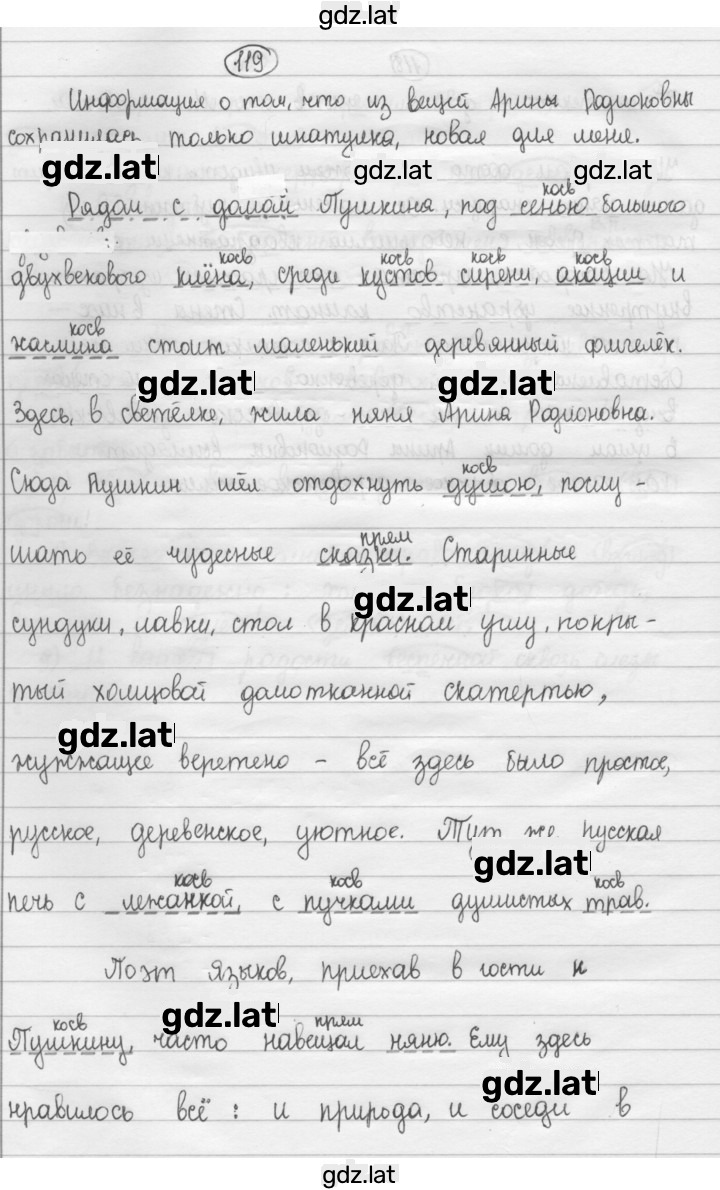 gdz.lat
119
Информация о том, что из вещей Арины Родионовны
сохранилась только шкатулка, новая для меня.
gdz.lat gdz.lat gdz.lat
косв
Рядом с домом Пушкина, под сенью большого
косв косв косв косв
двухвекового клёна, среди кустов сирени, акации и
косв
жасмина стоит маленький деревянный флигелёк.
gdz.lat gdz.lat
Здесь, в светёлке, жила няня Арина Родионовна.
косв
Сюда Пушкин шёл отдохнуть душою, послу-
прям
шать её чудесные сказки. Старинные
gdz.lat
сундуки, лавки, стол в красном углу, покры-
тый холщовой домотканной скатертью,
gdz.lat
жужжащее веретено - всё здесь было простое,
русское, деревенское, уютное. Тут же русская
gdz.lat
косв косв косв
печь с лежанкой, с пучками душистых трав.
Поэт Языков, приехав в гости к
gdz.lat
косв прям
Пушкину, часто навещал няню. Ему здесь
gdz.lat
нравилось всё: и природа, и соседи в
gdz.lat